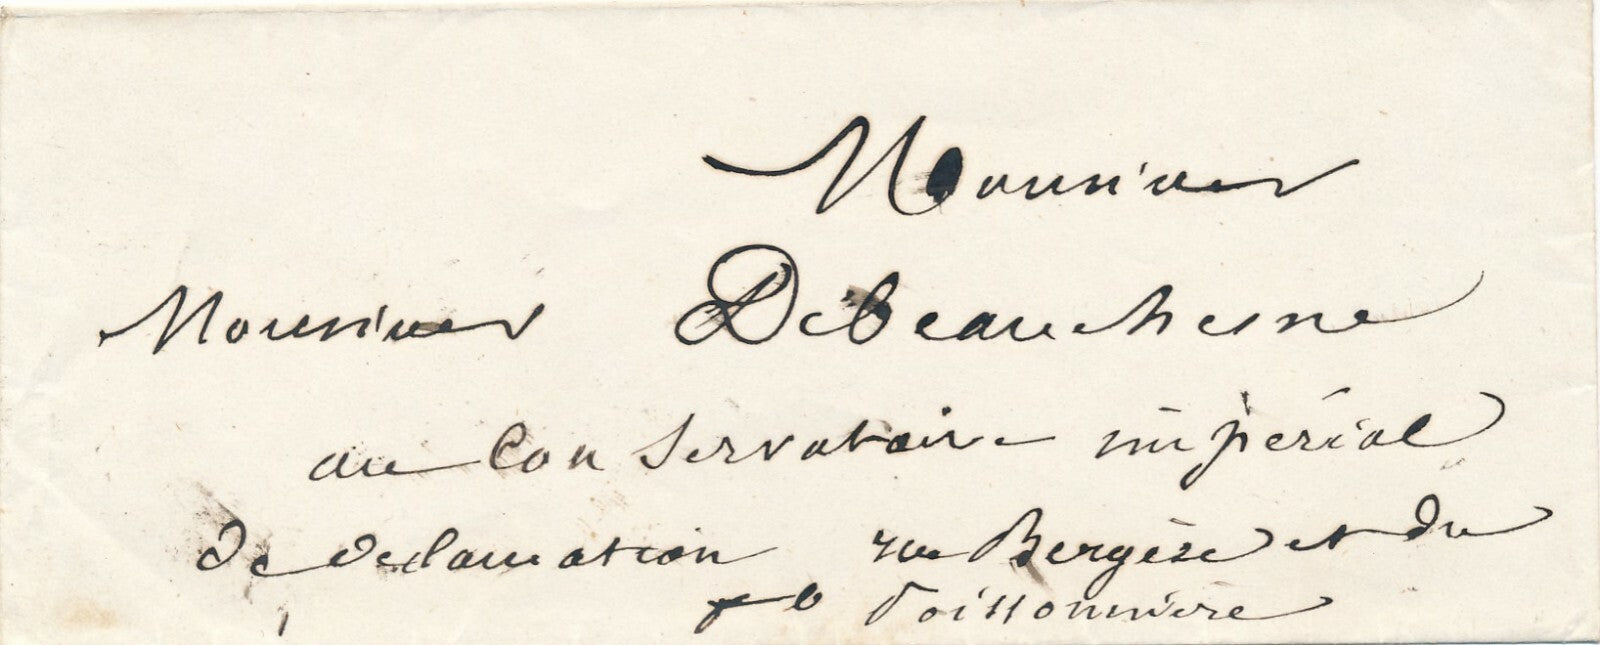 Monsieur
Monsieur Debeauchesne
au Conservatoire impérial
de declamation rue Bergère et du
fb Poissonnière